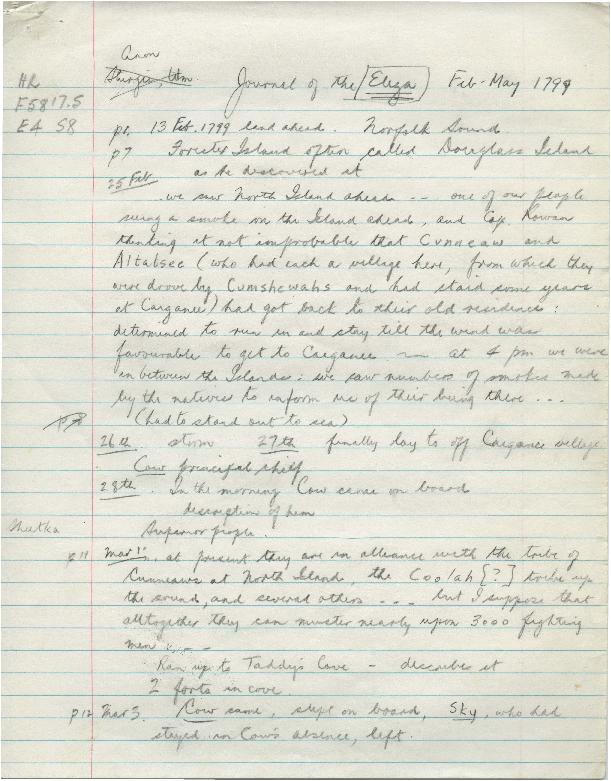 Anon
Sturgis, Wm. Journal of the (Eliza) Feb-May 1799
HR
F5817.5
E4 S8
p1. 13 Feb. 1799 land ahead. Norfolk Sound
p7 Forester Island often called Douglass Island
as he discovered it
25 Feb
we saw North Island ahead -- one of our people
seeing a smoke on the Island ahead, and Cap. Rowan
thinking it not improbable that Cunneaw and
Altatsee (who had each a village here, from which they
were drove by Cumshewahs and had staid some years
at Cargance) had got back to their old residence:
determined to run in and stay till the wind was
favourable to get to Cargance ~~ at 4 pm we were
in between the Islands: we saw numbers of smokes made
by the natives to inform us of their being there ...
(had to stand out to sea)
p8
26th storm 27th finally day to off Cargance village
Cow principal chief
28th. In the morning Cow came on board
description of him
Superior people.
p11 Mar 1st. at present they are in alliance with the tribe of
Cunneaws at North Island, the Coolah [?] tribe up
the sound, and several others ... but I suppose that
alltogether they can muster nearly upon 3000 fighting
men ....
Ran up to Taddy's Cove - describes it
2 forts in cove.
p12 Mar 3. Cow came, slept on board, Sky, who had
stayed in Cow's absence, left.